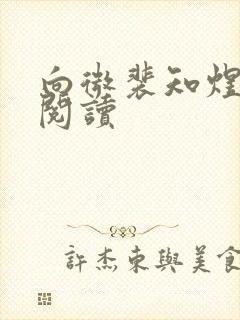 向微裴知煌
閱讀
許杰東與美食